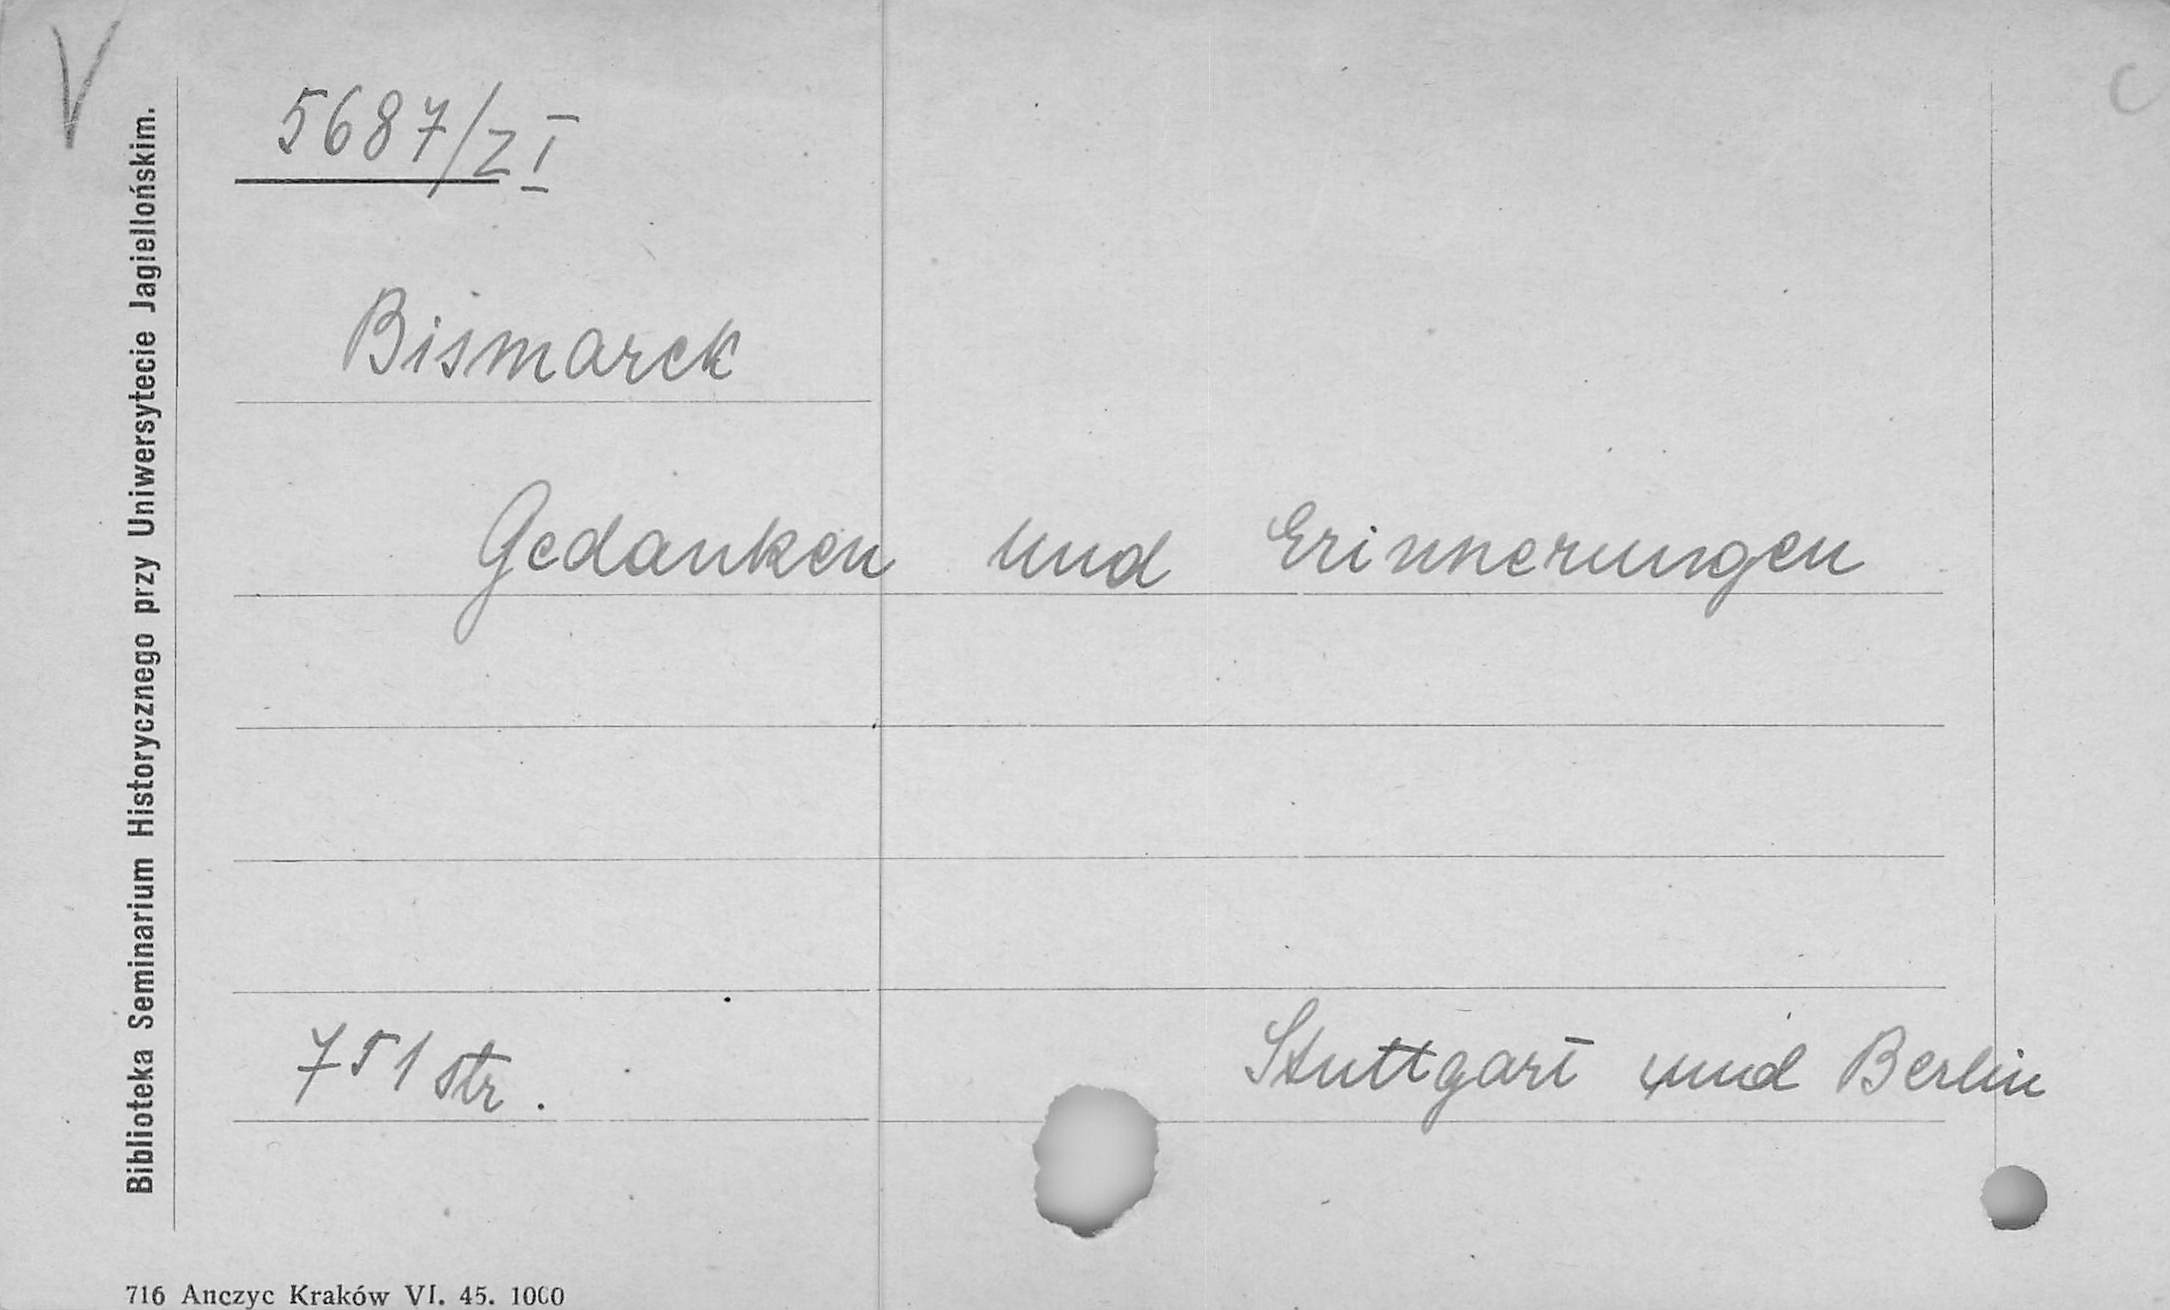 V
C
5687/Z I
Bismarck
Gedanken und Erinnerungen
751 str.
Stuttgart und Berlin
Biblioteka Seminarium Historycznego przy Uniwersytecie Jagiellońskim.
716 Anczyc Kraków VI. 45. 1000